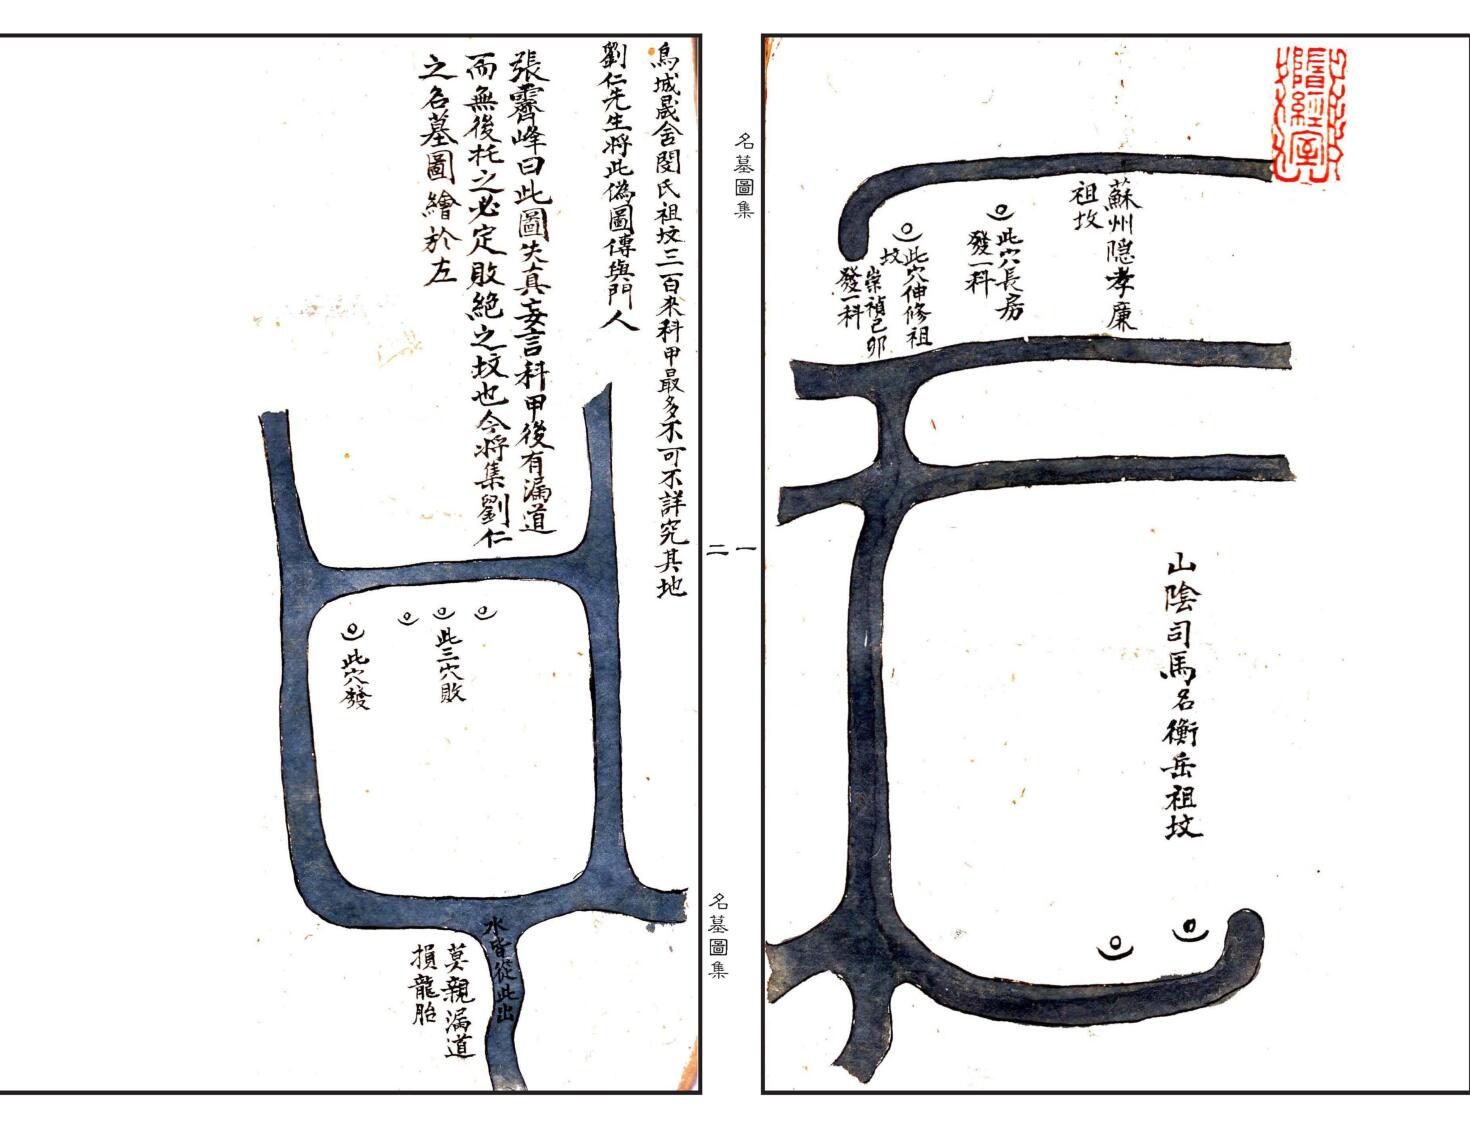 蘇州隠孝廉
祖坟
此穴長房
發一科
此穴伸修祖
坟
崇禎己卯
發一科
山陰司馬名衡岳祖坟
名墓圖集
一
二
名墓圖集
烏城晟舍閔氏祖坟三百來科甲最多不可不詳究其地
劉仁先生將此偽圖傳與門人
張霽峰曰此圖失真妄言科甲後有漏道
而無後托之必定敗絶之坟也今將集劉仁
之名墓圖繪於左
此三穴敗
此穴發
水皆從此出
莫親漏道
損龍胎